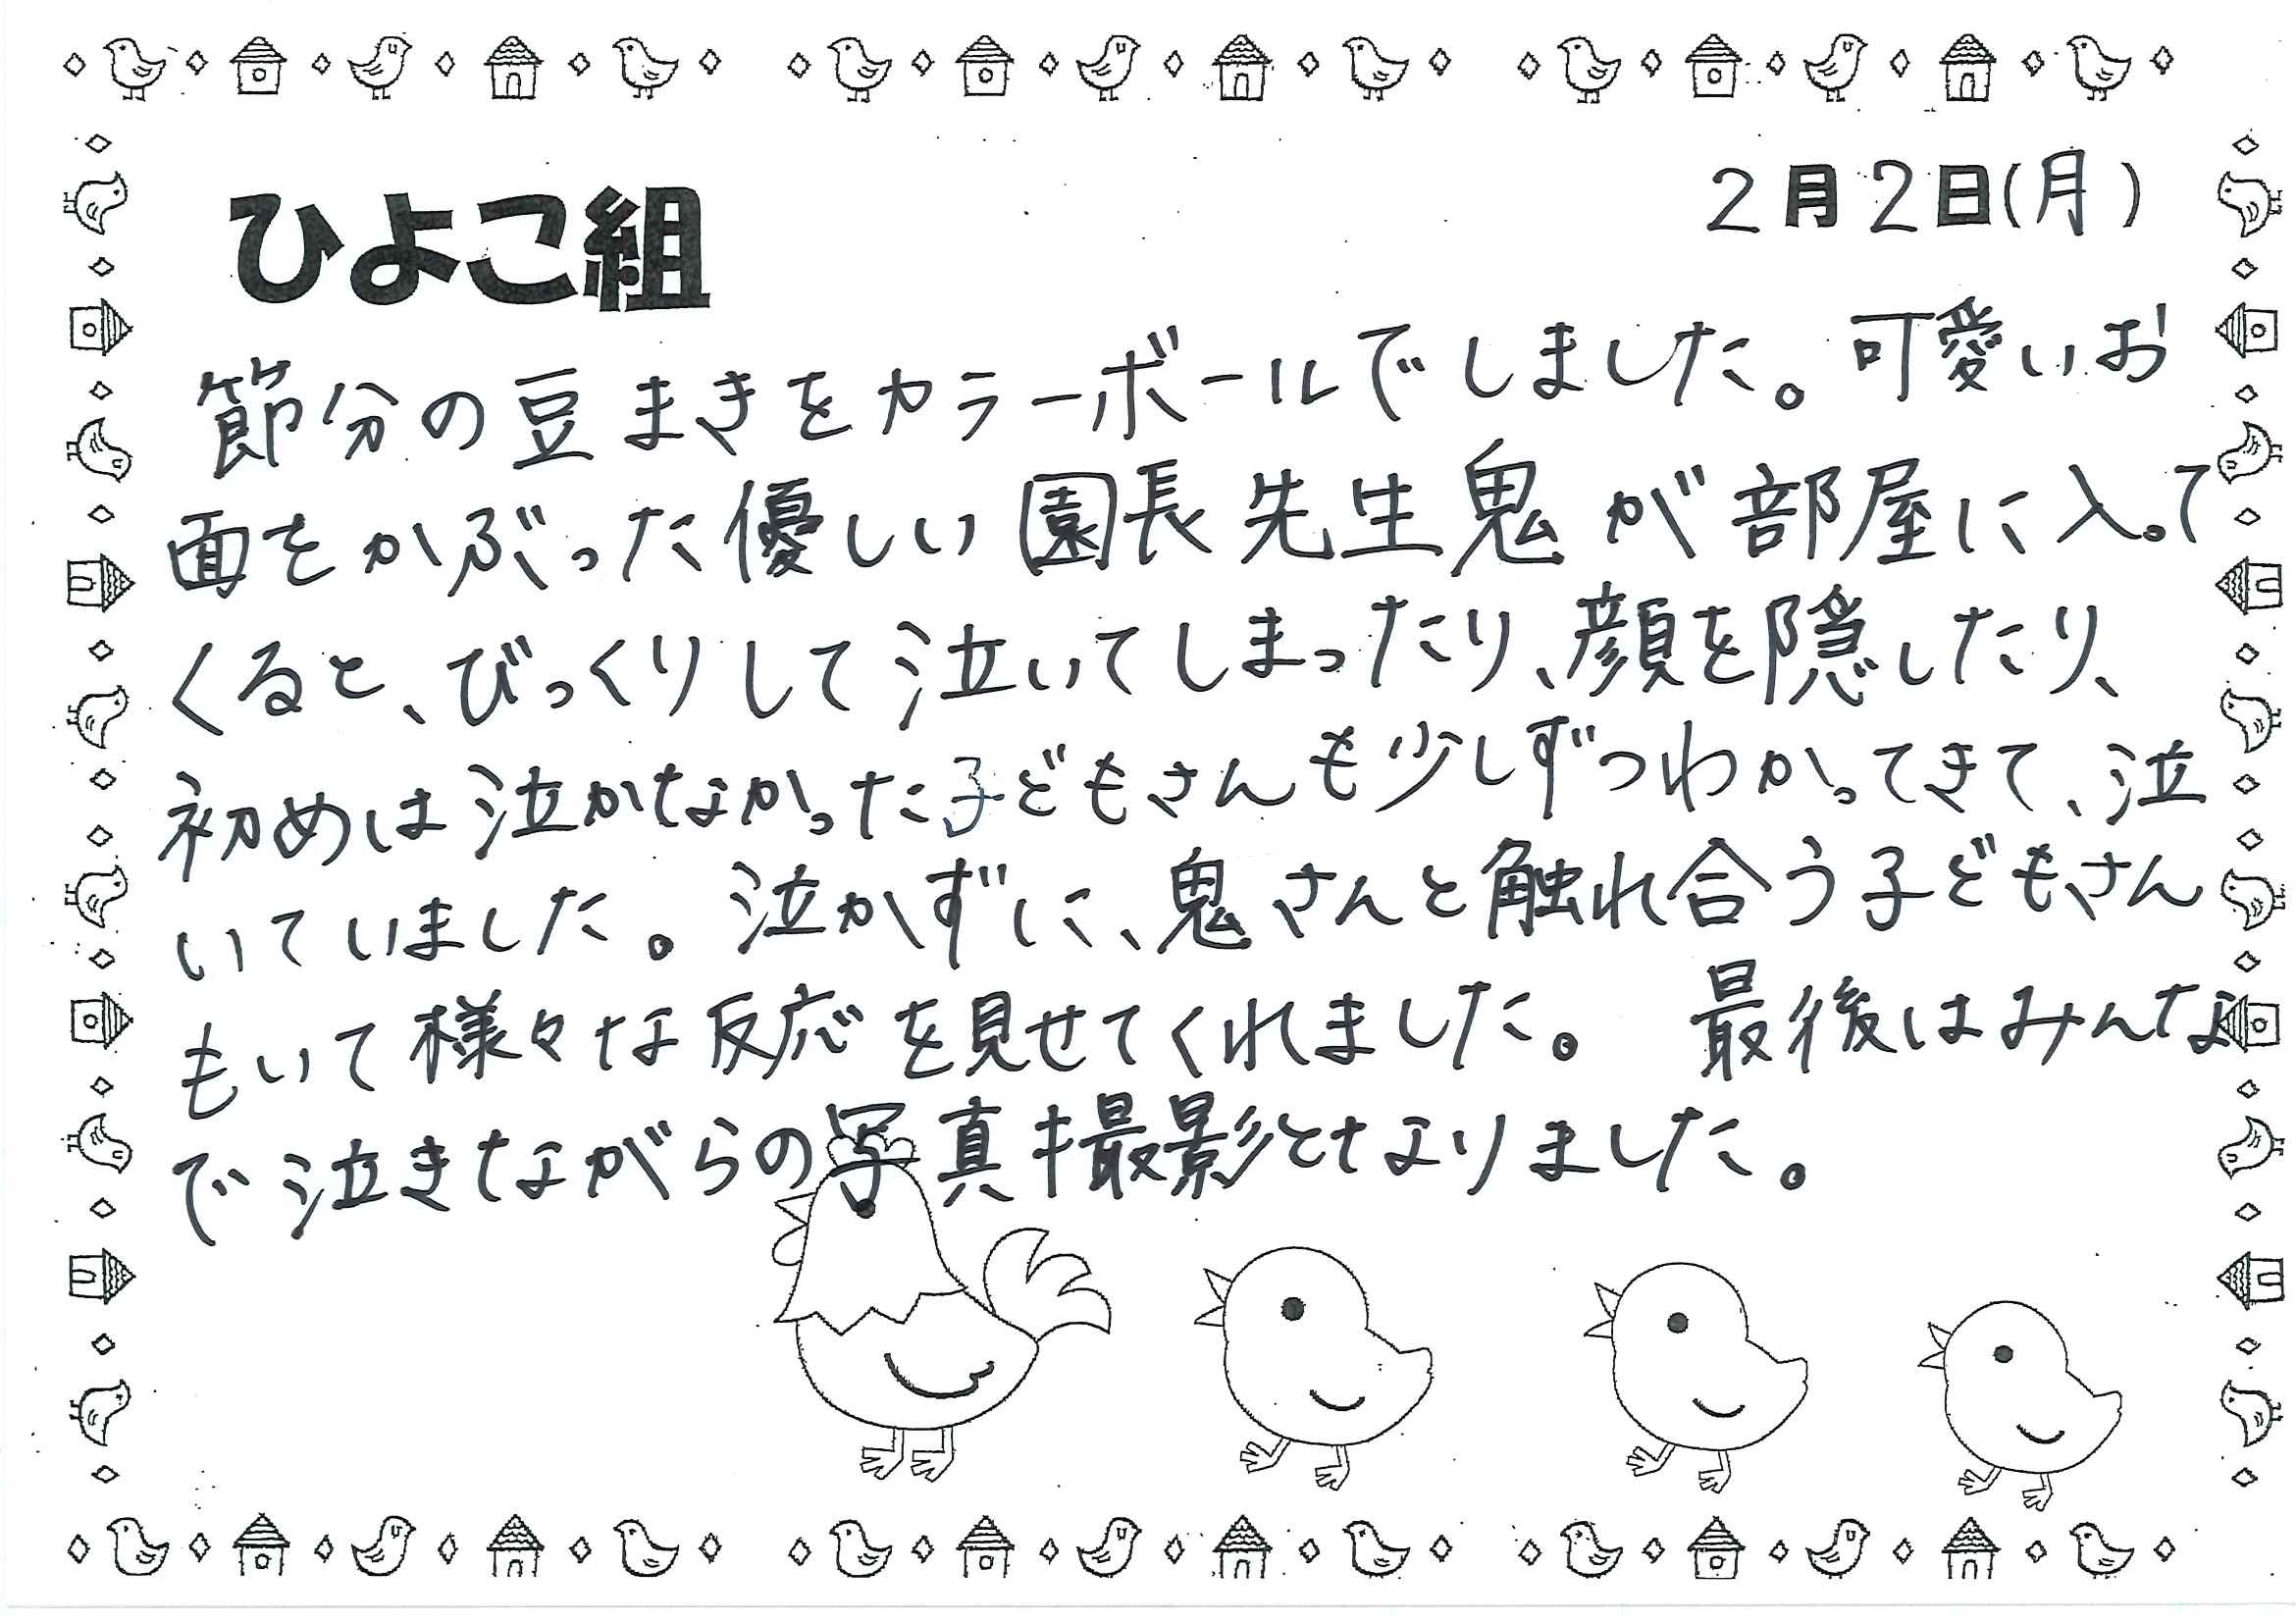 ひよこ組
2月2日(月)
節分の豆まきをカラーボールでしました。可愛いお
面をかぶった優しい園長先生鬼が部屋に入って
くると、びっくりして泣いてしまったり、顔を隠したり、
初めは泣かなかった子どもさんも少しずつわかってきて、泣
いていました。泣かずに、鬼さんと触れ合う子どもさん
もいて様々な反応を見せてくれました。 最後はみんな
で泣きながらの写真撮影となりました。